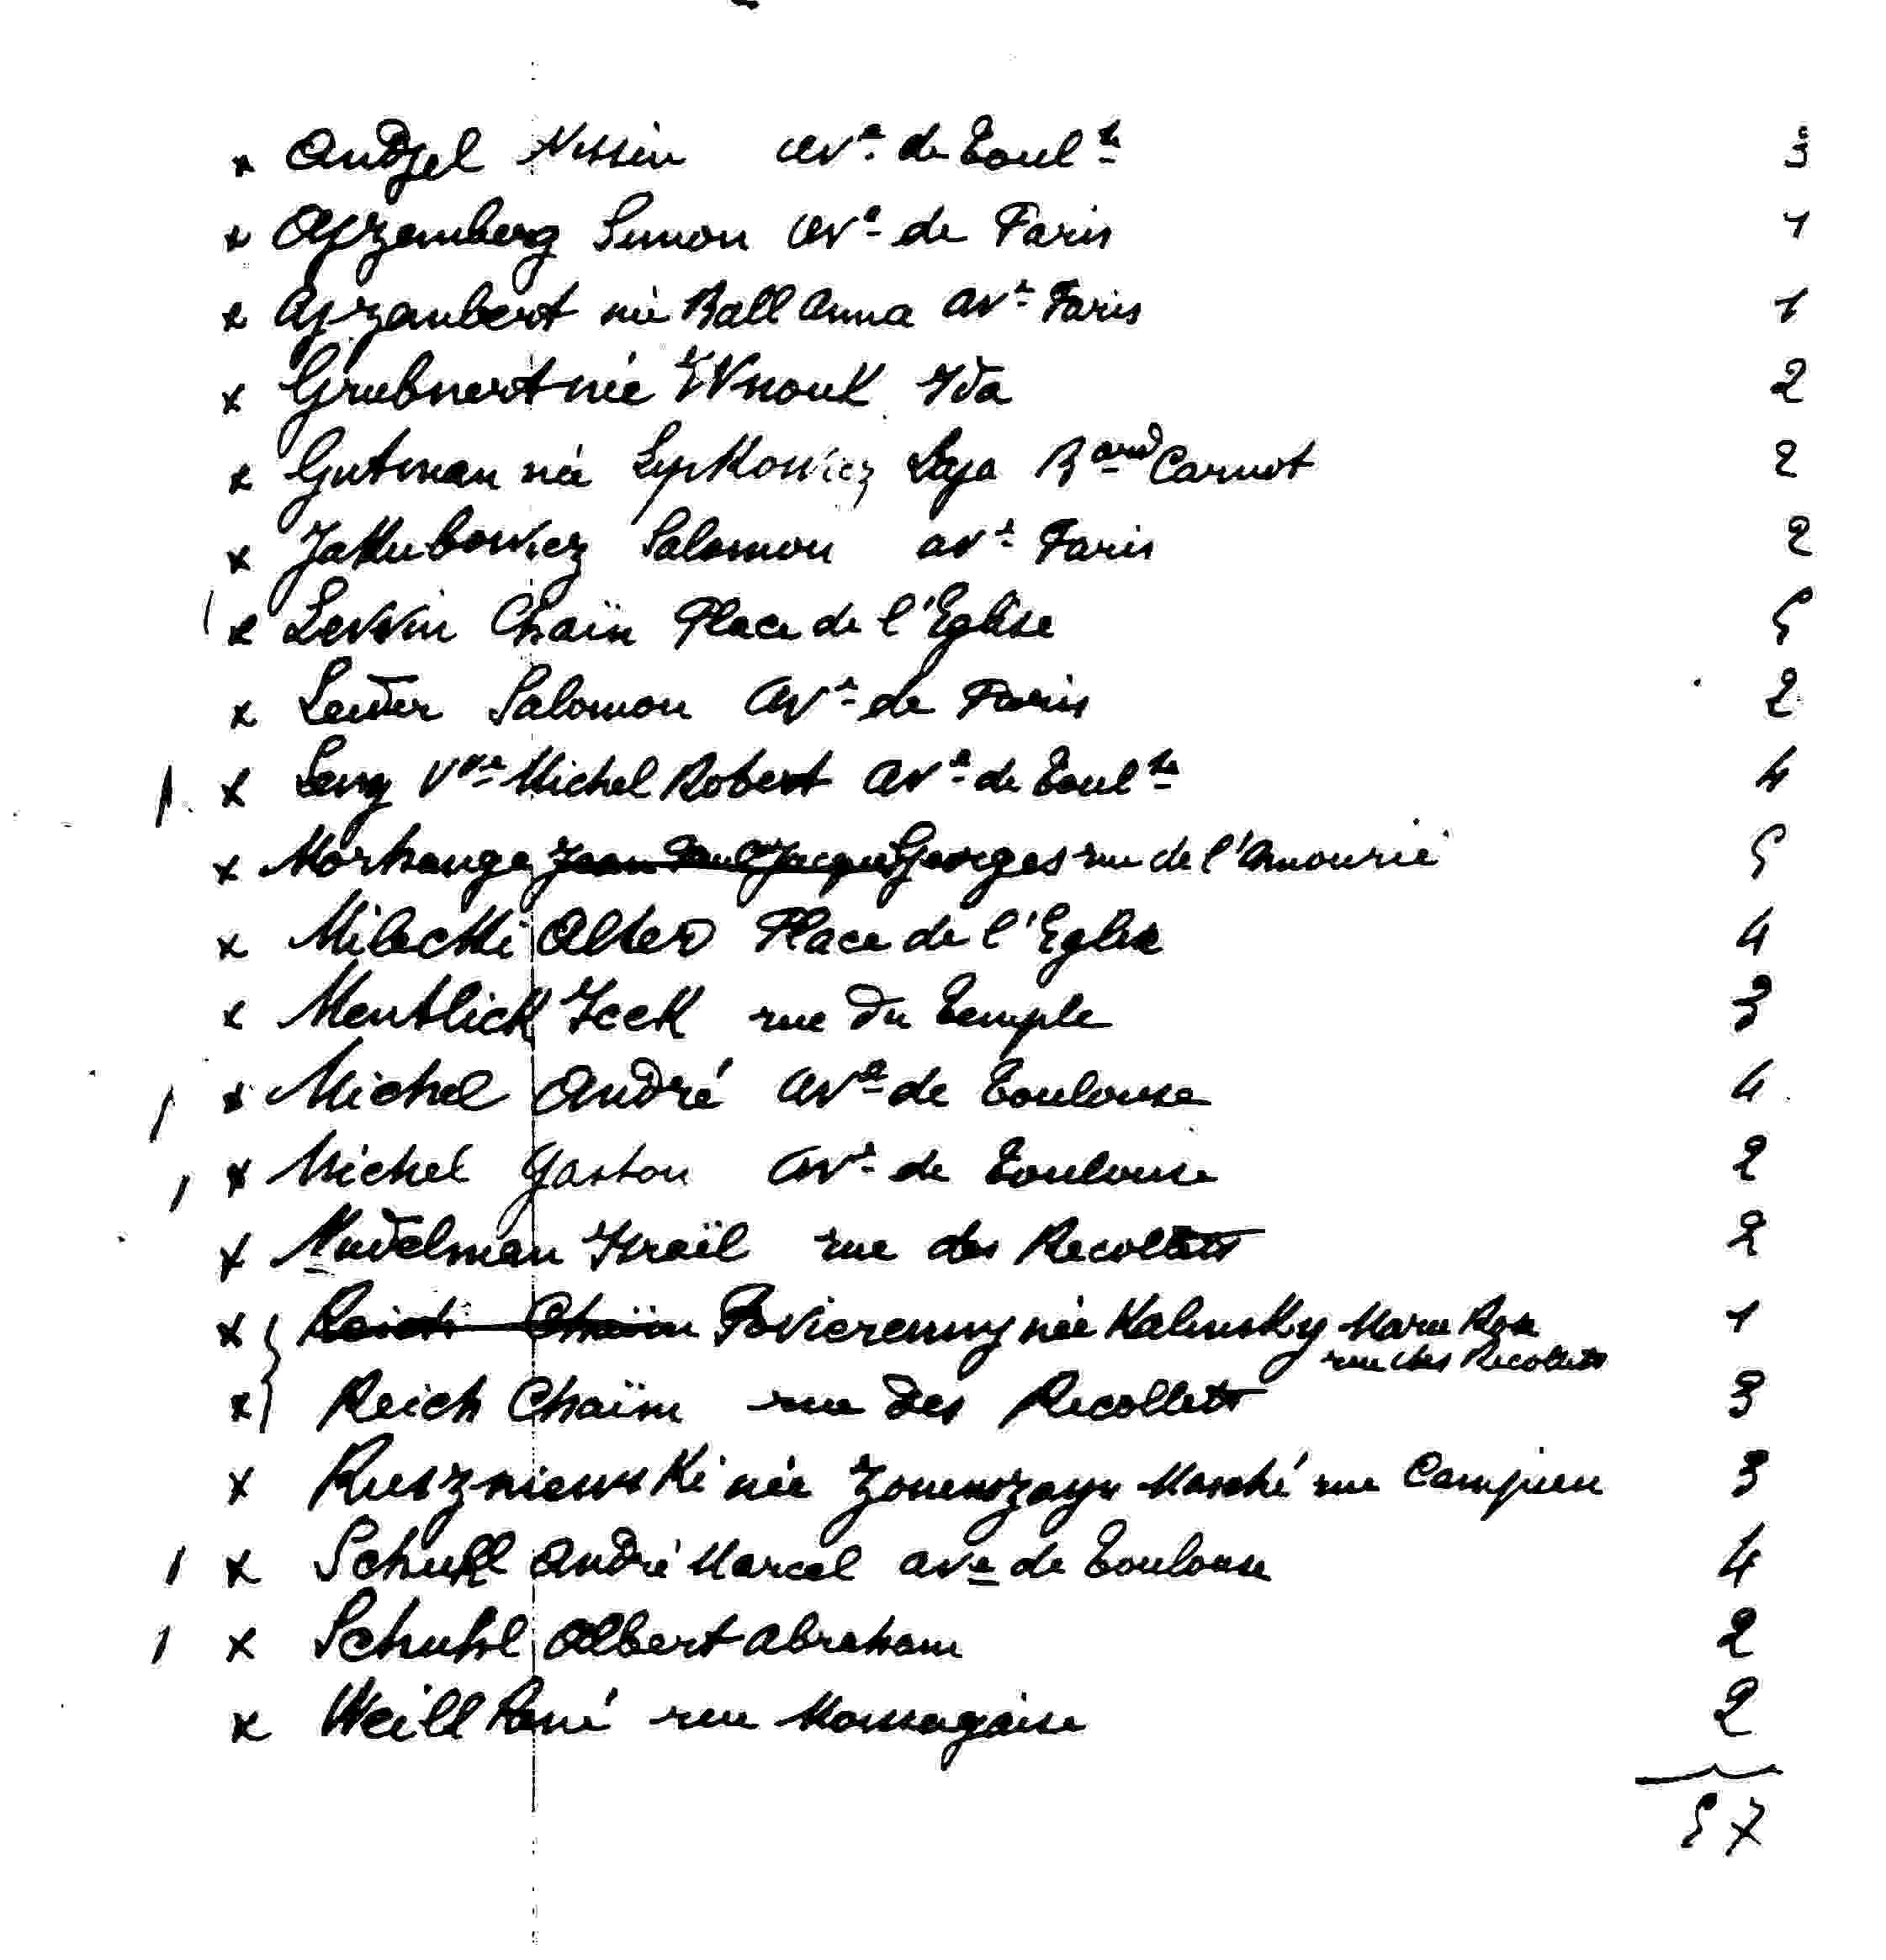 x Andjel Nissin av^e. de Toul^se 3
x Ajzemberg Simon av^e de Paris 1
x Ajzanbert née Ball Anna av^e Paris 1
x Grubnert née Ida 2
x Gutman née Lipkowicz Laja B^ard Carnot 2
x Jakubowicz Salomon av^e Paris 2
x Lewin Chaïn Place de l'Eglise 5
x Leider Salomon Av^e de Paris 2
x Levy V^ve Michel Robert av^e de Toul^se 4
x Morhange Jean Paul Jacques Georges rue de l'Amourié 5
x Milecki Alter Place de l'Eglise 4
x Mentlick Icek rue du Temple 3
x Michel André av^e de Toulouse 4
x Michel Gaston av^e de Toulouse 2
x Nudelman Israël rue des Recollets 2
x Reich Chaïm Povierenny née Kalinsky Marie Rose 1
rue des Recollets
x Reich Chaïm rue des Recollets 3
x Ruszniewski née Maské rue Campieu 3
x Schull André Marcel av^e de Toulouse 4
x Schuhl Albert Abraham 2
x Weill René rue 2
57